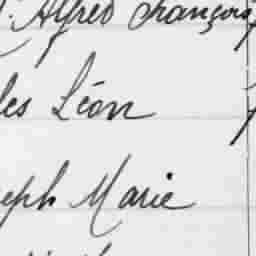 Alfred François
les Léon
eph Marie